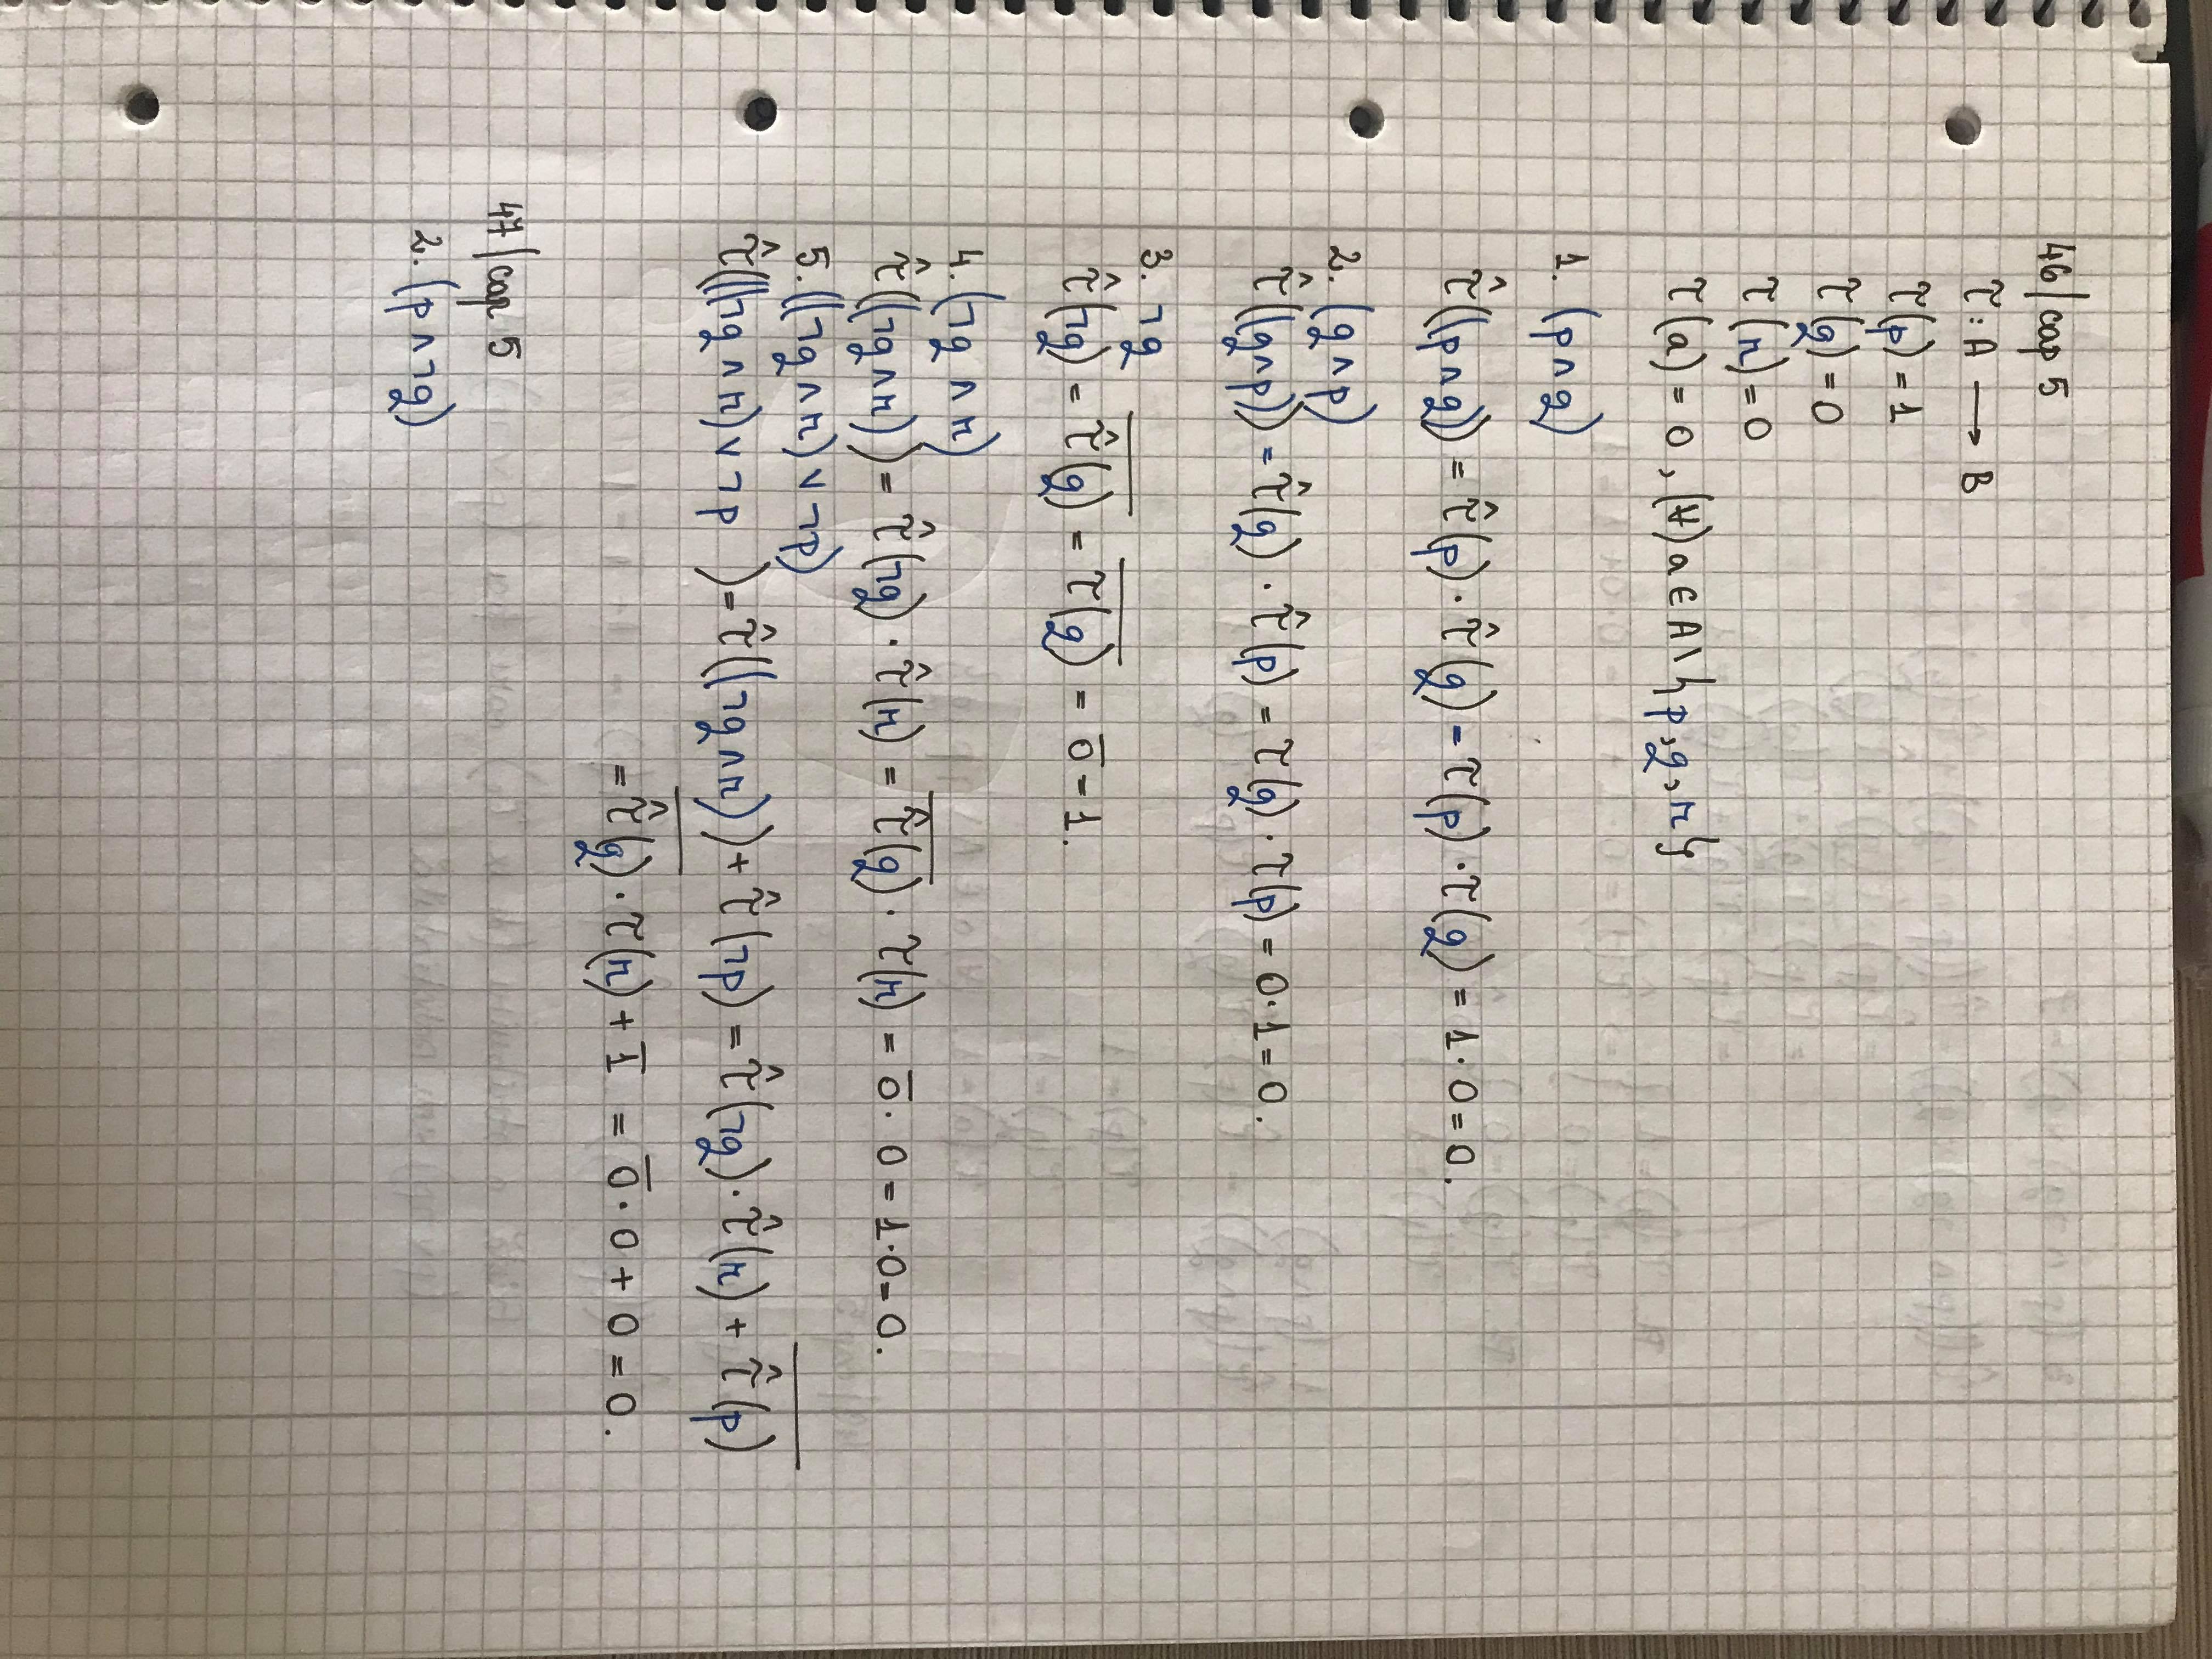 46/cap 5
τ : A → B
τ(p) = 1
τ(q) = 0
τ(r) = 0
τ(a) = 0, (∀) a ∈ A \ {p, q, r}
1. (p ∧ q)
τ̂((p ∧ q)) = τ̂(p) · τ̂(q) = τ(p) · τ(q) = 1 · 0 = 0.
2. (q ∧ p)
τ̂((q ∧ p)) = τ̂(q) · τ̂(p) = τ(q) · τ(p) = 0 · 1 = 0.
3. ¬q
τ̂(¬q) = \overline{τ̂(q)} = \overline{τ(q)} = \overline{0} = 1.
4. (¬q ∧ r)
τ̂((¬q ∧ r)) = τ̂(¬q) · τ̂(r) = \overline{τ̂(q)} · τ(r) = \overline{0} · 0 = 1 · 0 = 0.
5. ((¬q ∧ r) ∨ ¬p)
τ̂(((¬q ∧ r) ∨ ¬p )) = τ̂((¬q ∧ r)) + τ̂(¬p) = τ̂(¬q) · τ̂(r) + \overline{τ̂(p)}
= \overline{τ̂(q)} · τ(r) + \overline{1} = \overline{0} · 0 + 0 = 0.
47/cap 5
2. (p ∧ ¬q)